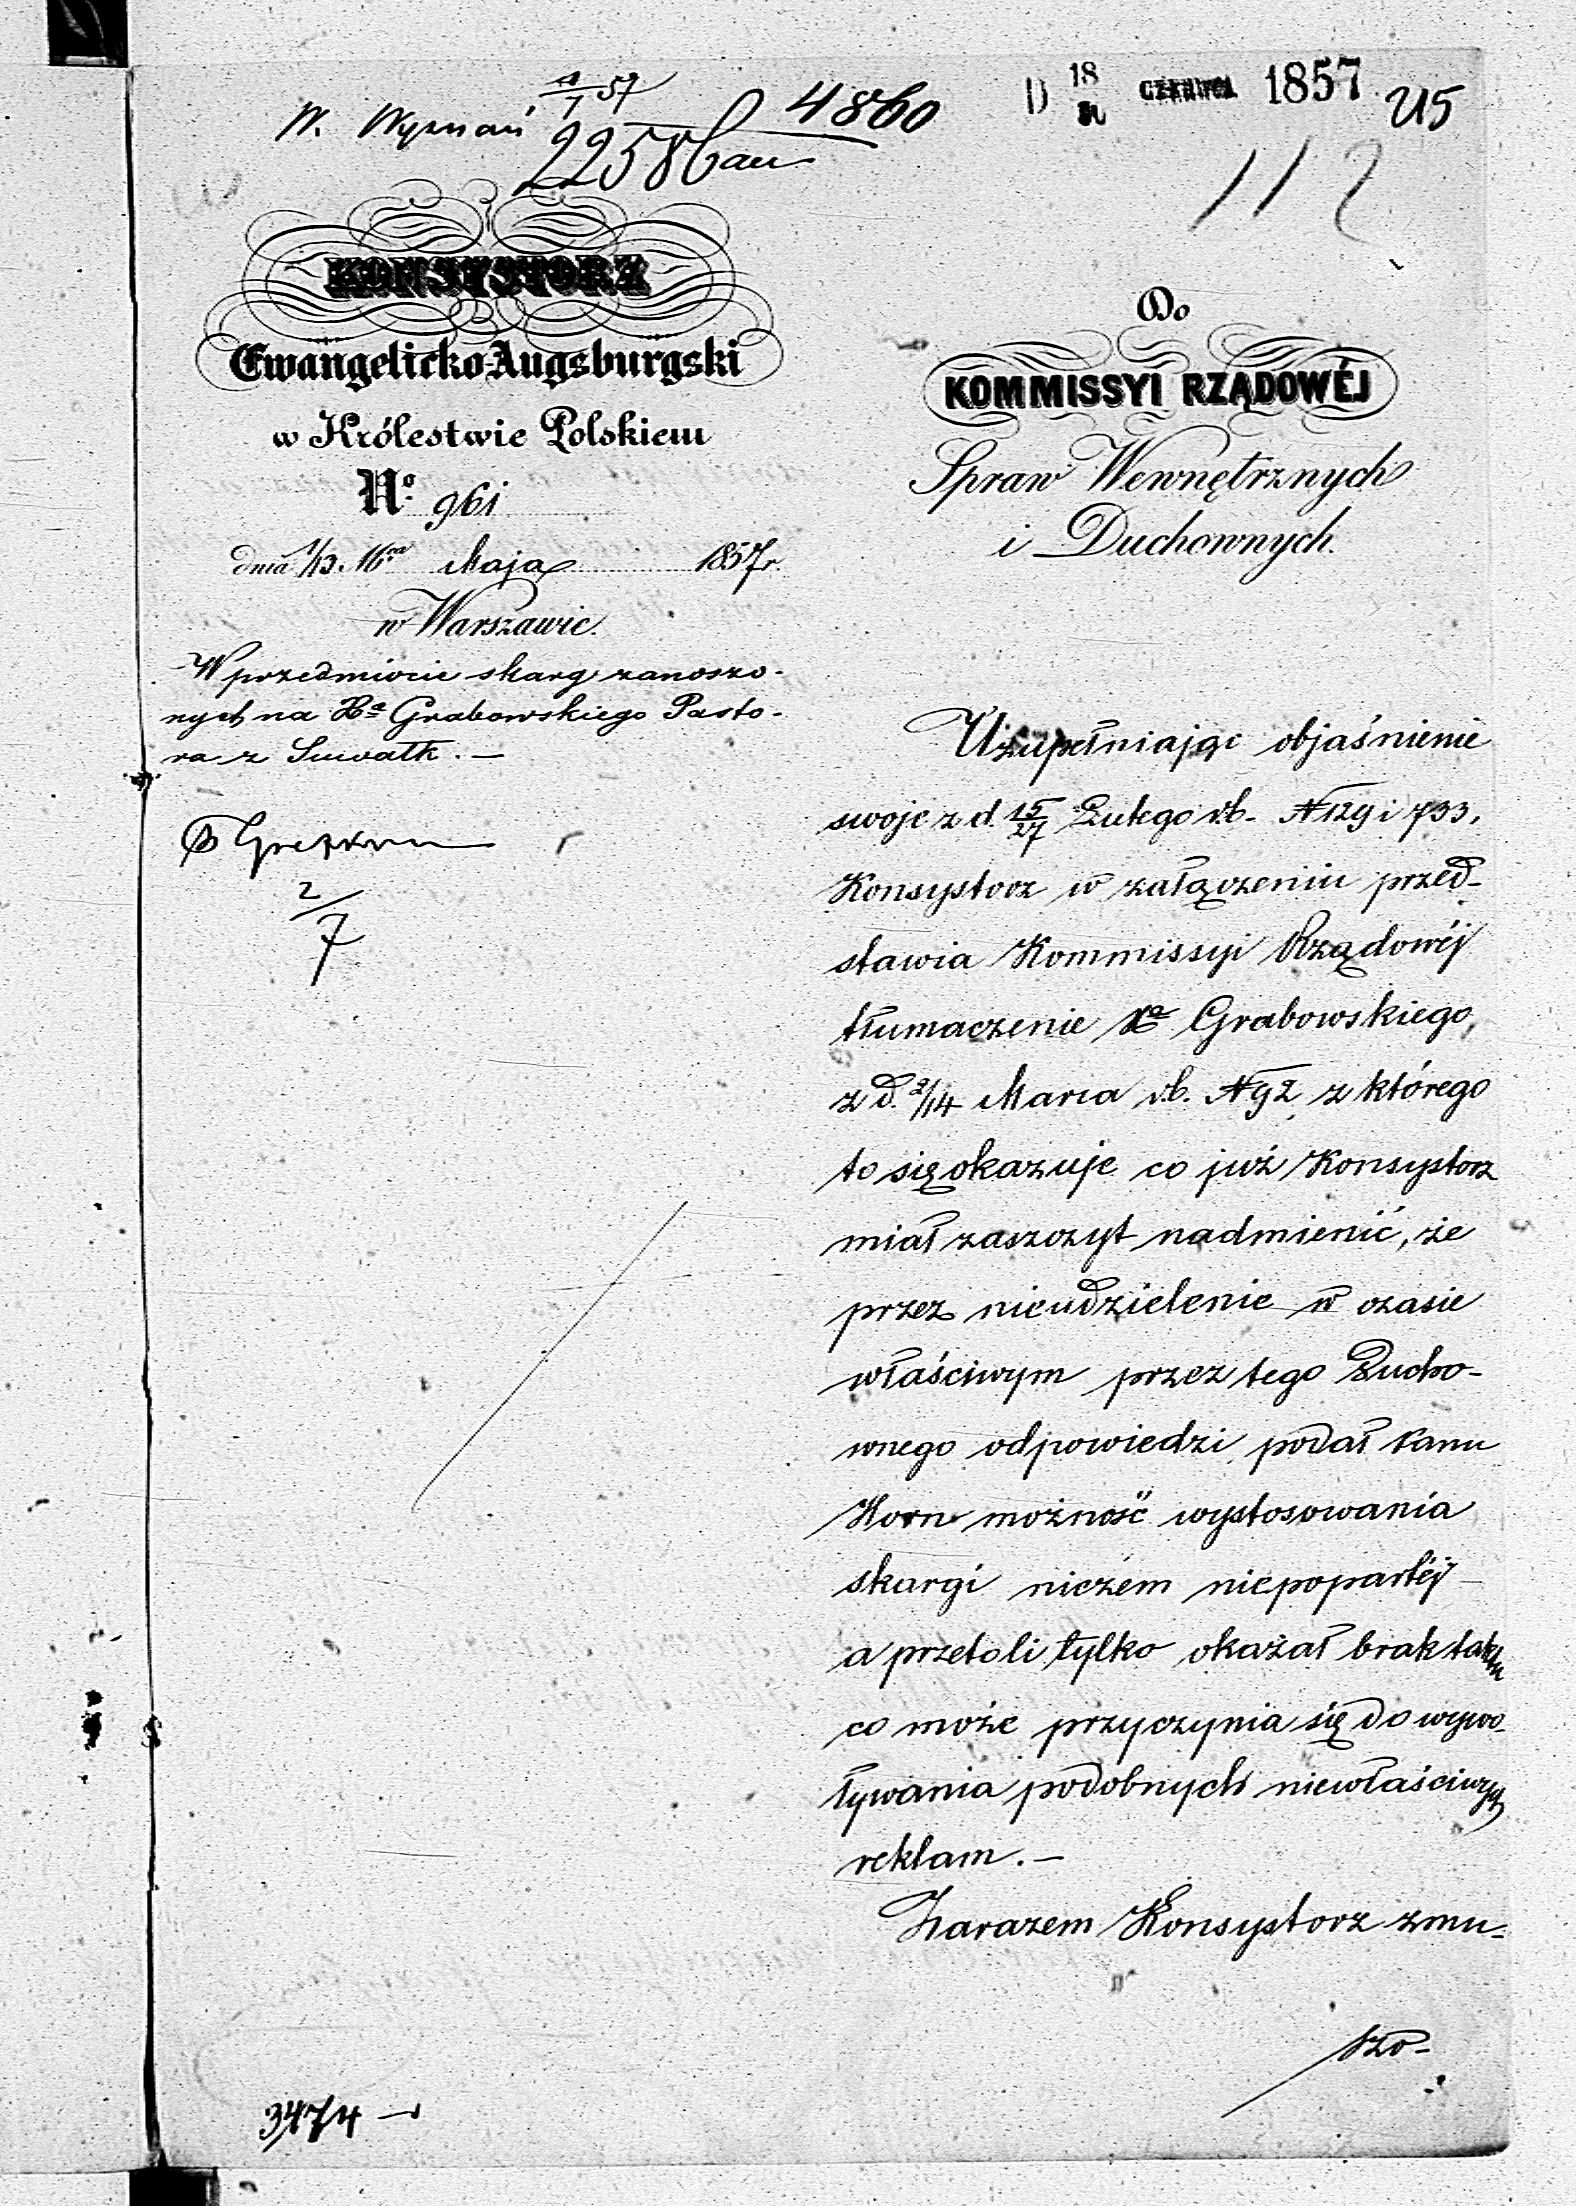 W. Wyznań 4/7 57
22586
4860
D 18 CZERWCA 1857
115
112
KONSYSTORZ
Ewangelicko-Augsburgski
w Królestwie Polskiem
No. 961
dnia 1/13 Maja 1857 r.
w Warszawie.
W przedmiocie skarg zanoszo-
nych na Xa Grabowskiego Pasto-
ra z Suwałk. —
2/7
Do
KOMMISSYI RZĄDOWÉJ
Spraw Wewnętrznych
i Duchownych.
Uzupełniając objaśnienie
swoje z d. 15/27 Lutego r.b. N 129 i 733,
Konsystorz w załączeniu przed-
stawia Kommissyi Rządowéj
tłumaczenie Xa Grabowskiego,
z d. 2/14 Marca r.b. N 92, z którego
to się okazuje co już Konsystorz
miał zaszczyt nadmienić, że
przez nieudzielenie w czasie
właściwym przez tego Ducho-
wnego odpowiedzi, podał Panu
Horn możność wystosowania
skargi niczem niepopartéj
a przetoli tylko okazał brak taktu
co może przyczynia się do wywo-
ływania podobnych niewłaściwych
reklam. —
Zarazem Konsystorz zmu-
szo-
3474